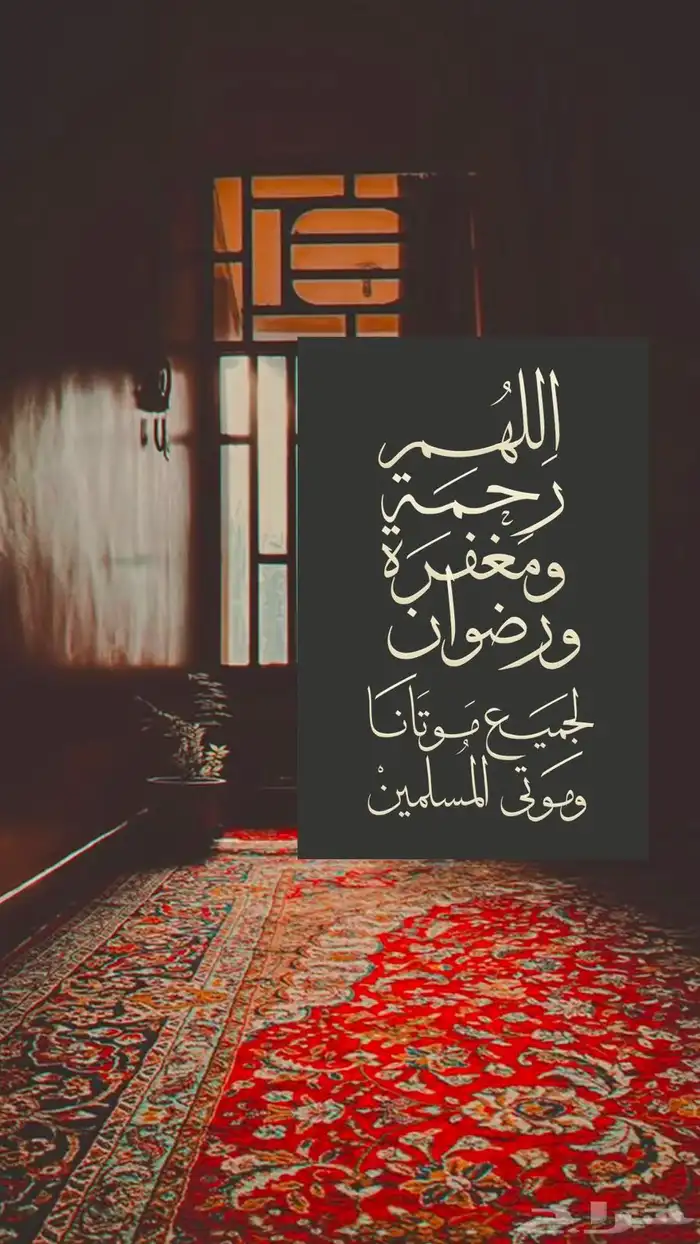 اللهُم
رَحمَة
ومَغفرَة
ورضوان
لجَميَع مَوتَانَا
ومَوَتى المُسلمينْ
حراج